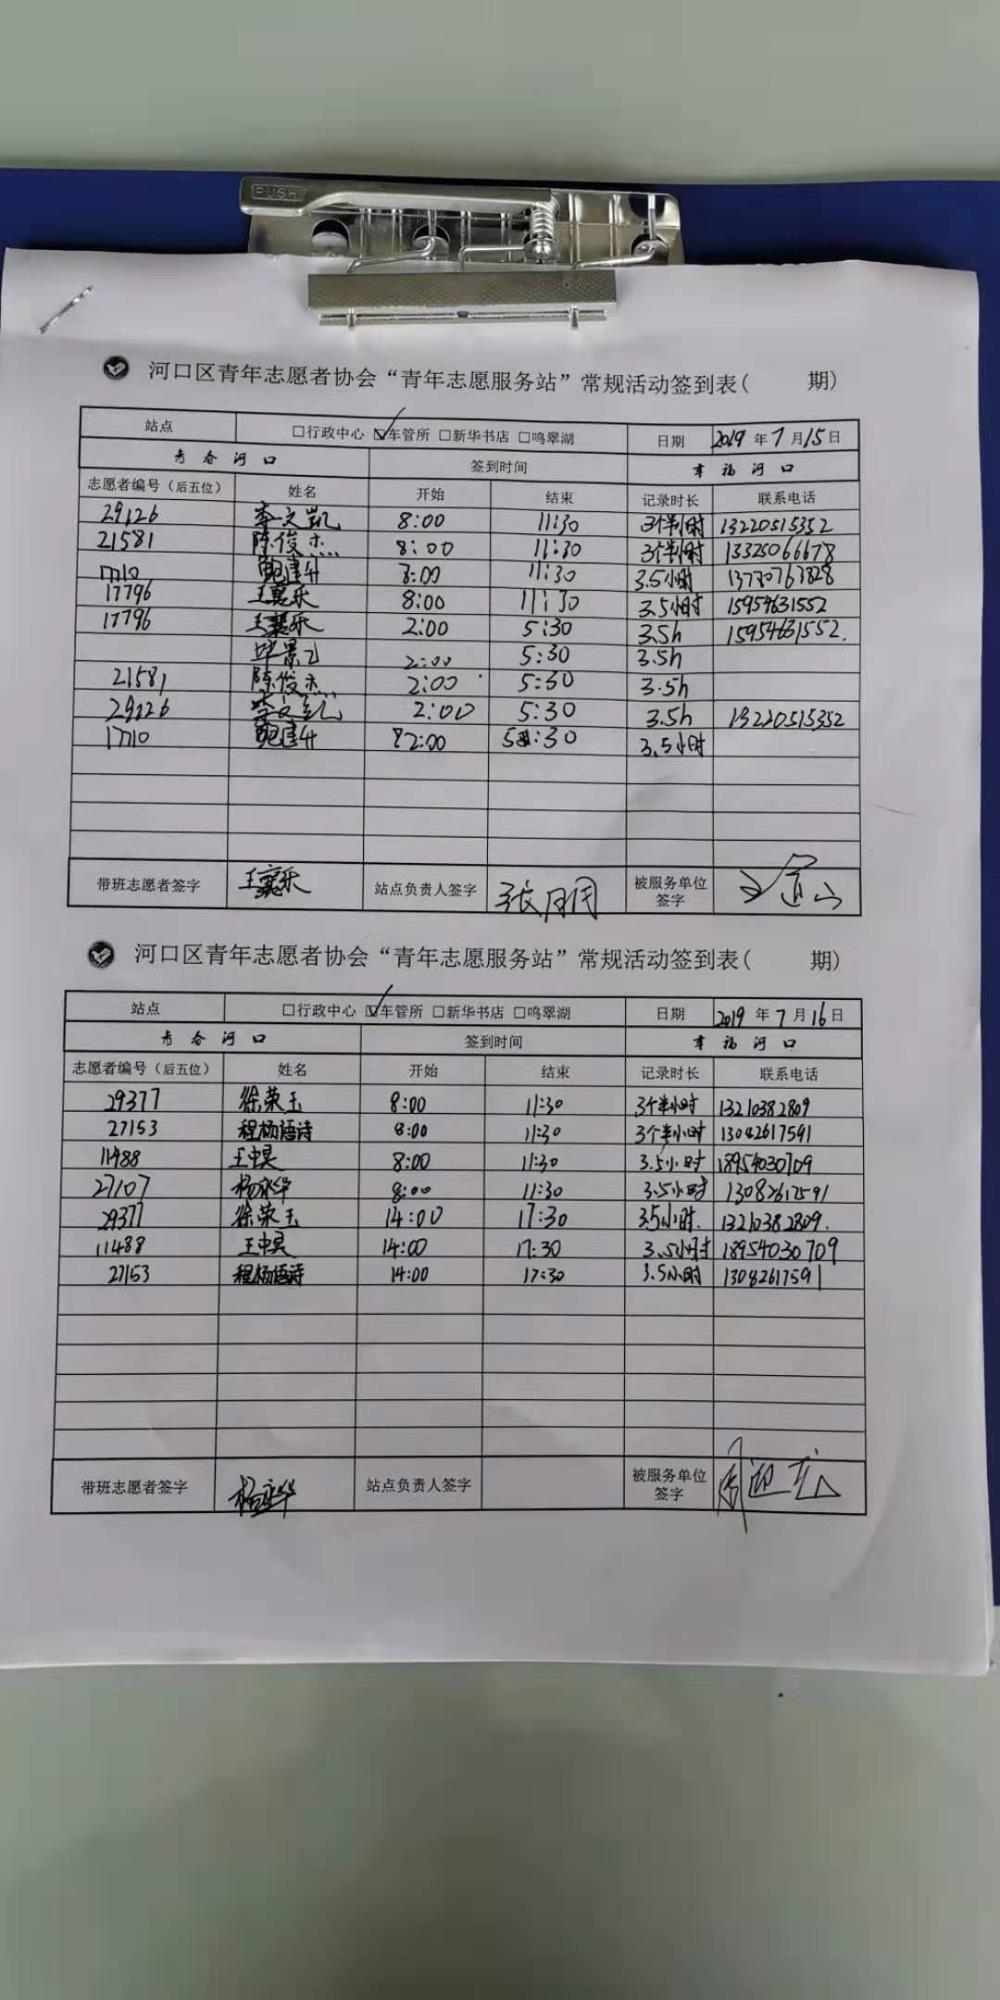 PUSH
河口区青年志愿者协会“青年志愿服务站”常规活动签到表( 期)
站点 □行政中心 ☑车管所 □新华书店 □鸣翠湖 日期 2019年7月15日
青春河口 签到时间 幸福河口
志愿者编号（后五位） 姓名 开始 结束 记录时长 联系电话
29126 李文凯 8:00 11:30 3个半小时 13220515352
21581 陈俊杰 8:00 11:30 3个半小时 13325066678
17710 8:00 11:30 3.5小时 13770763828
17796 王襄乐 8:00 11:30 3.5小时 15954631552
17796 王襄乐 2:00 5:30 3.5h 15954631552.
2:00 5:30 3.5h
21581 陈俊杰 2:00 5:30 3.5h
29126 李文凯 2:00 5:30 3.5h 13220515352
17710 2:00 5:30 3.5小时
带班志愿者签字 王襄乐 站点负责人签字 被服务单位签字
河口区青年志愿者协会“青年志愿服务站”常规活动签到表( 期)
站点 □行政中心 ☑车管所 □新华书店 □鸣翠湖 日期 2019年7月16日
青春河口 签到时间 幸福河口
志愿者编号（后五位） 姓名 开始 结束 记录时长 联系电话
29377 徐荣玉 8:00 11:30 3个半小时 13210382809
27153 程杨语诗 8:00 11:30 3个半小时 13082617591
11488 王中昊 8:00 11:30 3.5小时 18954030709
27107 8:00 11:30 3.5小时 13082617591
29377 徐荣玉 14:00 17:30 3.5小时. 13210382809.
11488 王中昊 14:00 17:30 3.5小时 18954030709
27153 程杨语诗 14:00 17:30 3.5小时 13082617591
带班志愿者签字 站点负责人签字 被服务单位签字